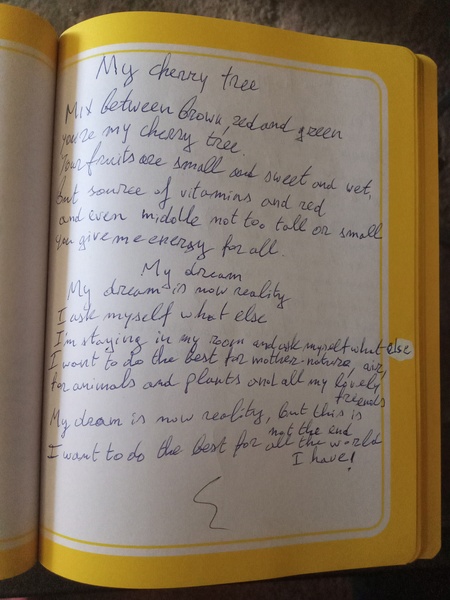 My cherry tree
Mix between brown, red and green
you're my cherry tree.
Your fruits are small and sweet and wet,
but source of vitamins and red
and even middle not too tall or small
you give me energy for all.
My dream
My dream is now reality
I ask myself what else
I'm staying in my room and ask myself what else
I want to do the best for mother-nature, air,
for animals and plants and all my lovely
freends
My dream is now reality, but this is
not the end
I want to do the best for all the world
I have!